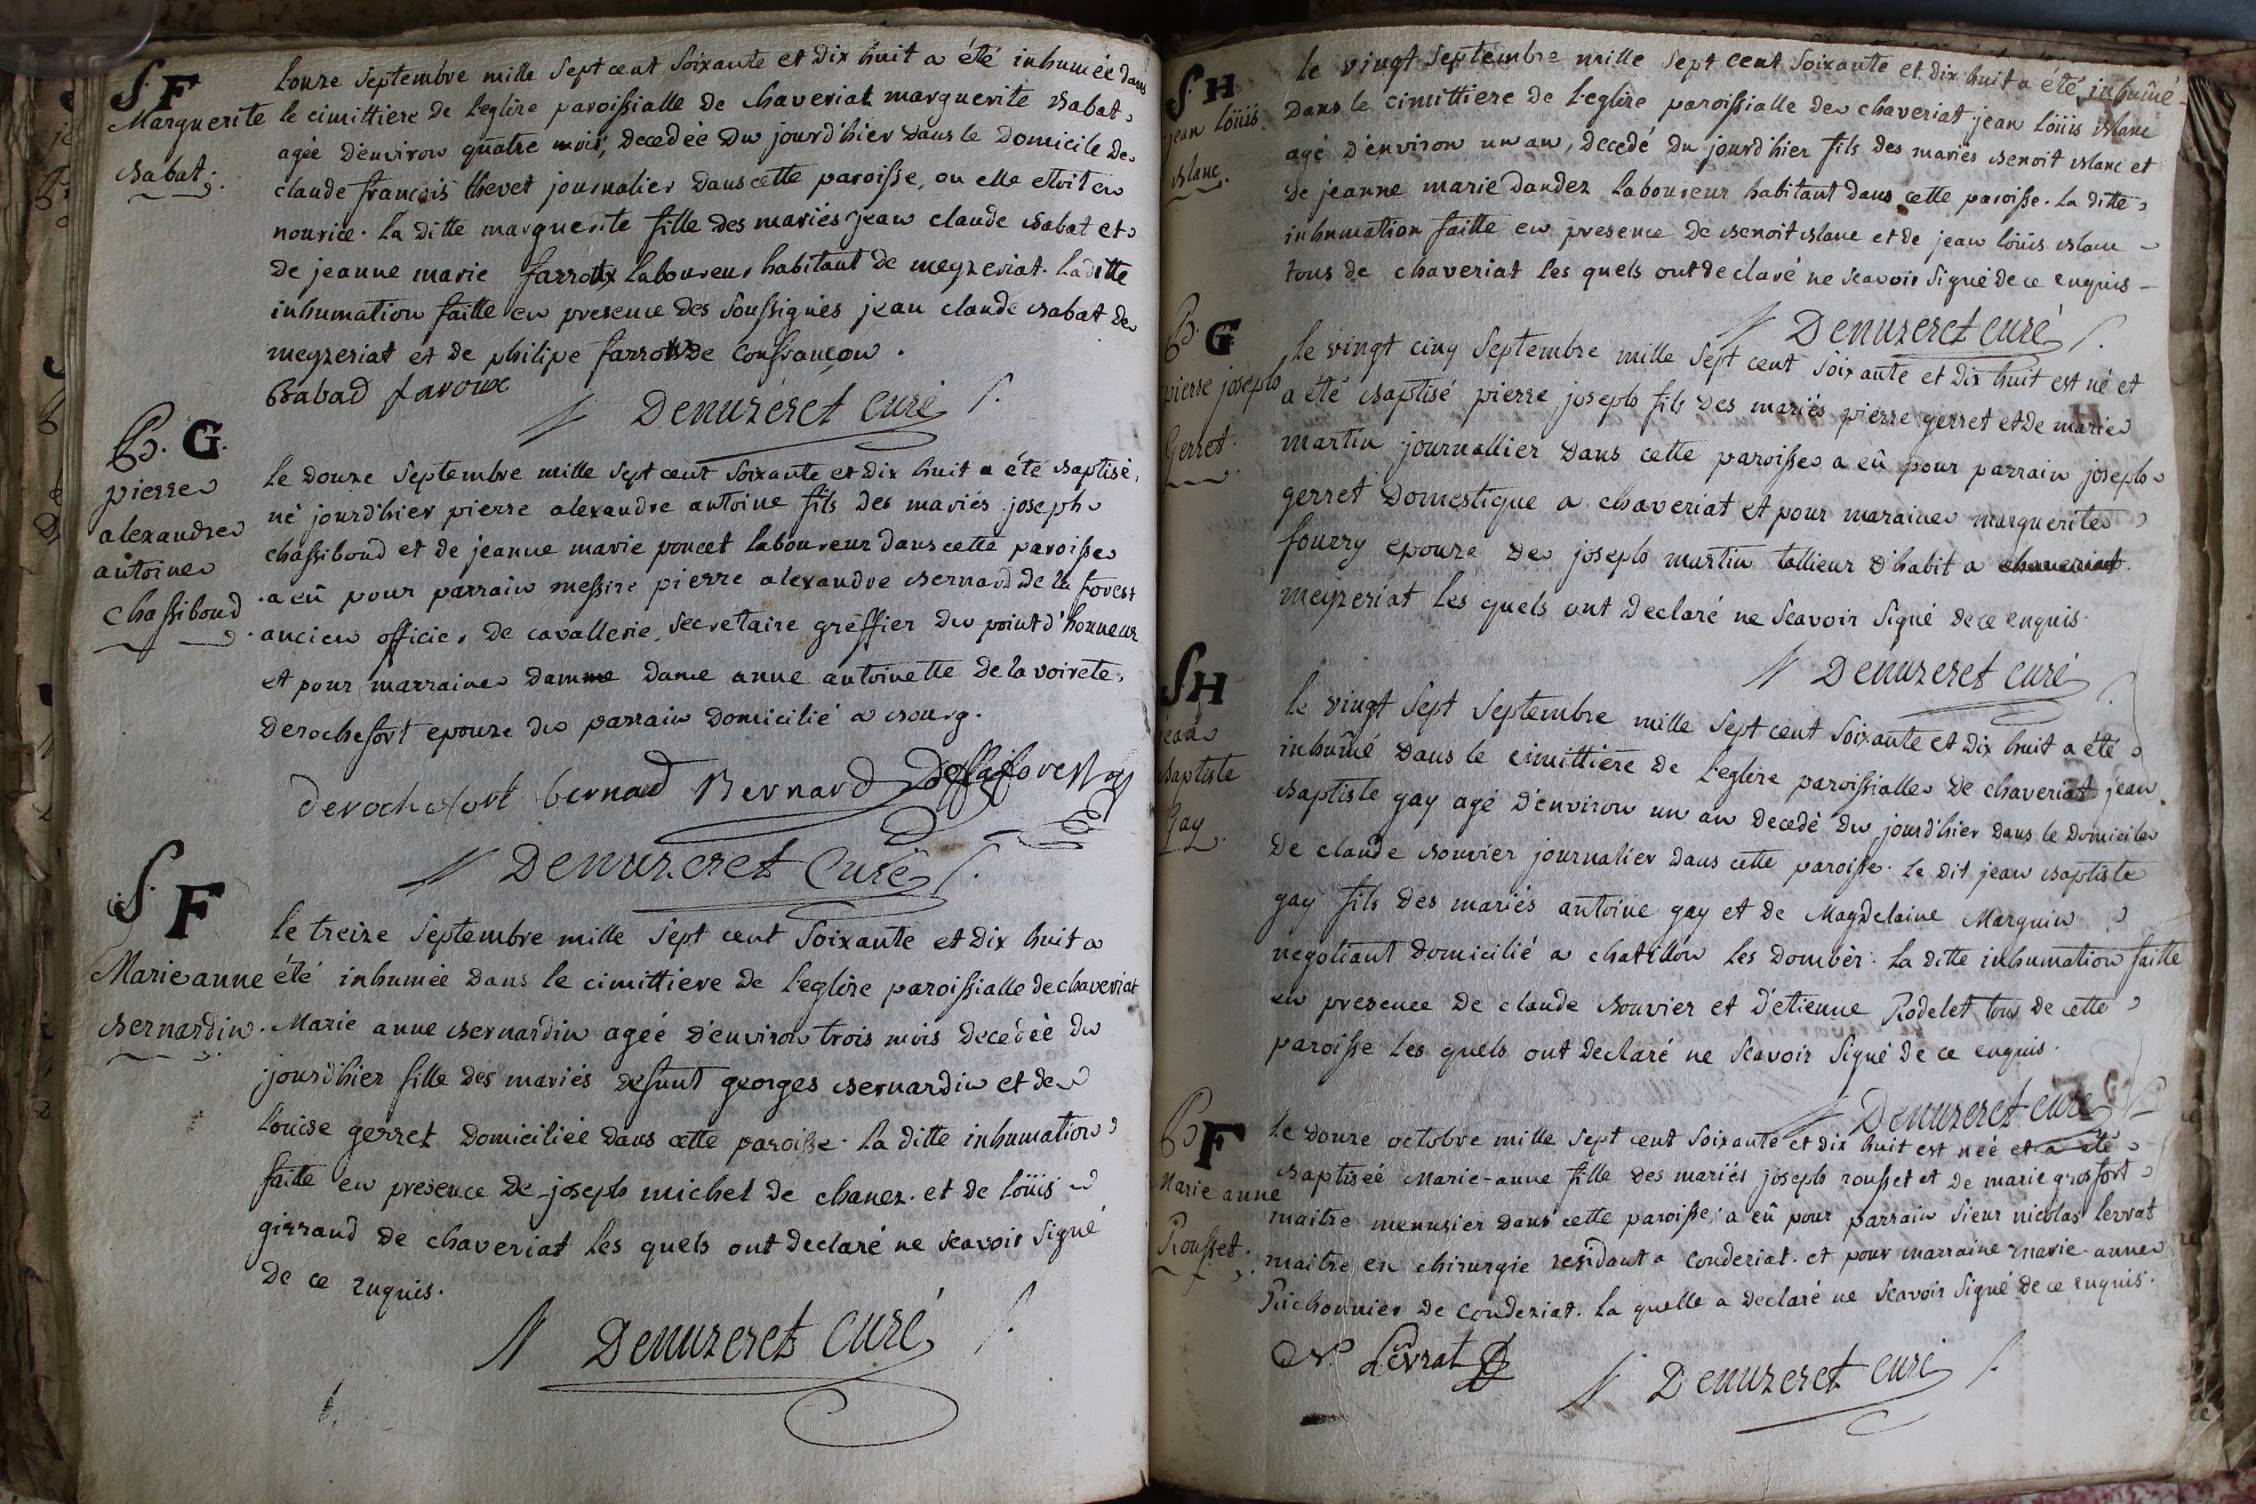 S. F
Marguerite
Babat.
L'onze septembre mille sept cent soixante et dix huit a été inhumée dans
le cimittiere de l'eglise paroissialle de chaveriat marguerite Babat
agée d'environ quatre mois, decedée du jourd'hier dans le domicile de
claude françois thevet journalier dans cette paroisse, ou elle etoit en
nourice. La ditte marguerite fille des mariés jean claude Babat et
de jeanne marie farroux laboureur habitant de meyzeriat. La ditte
inhumation faitte en presence des soussignés jean claude Babat de
meyzeriat et de philipe farroux de Confrançon.
Babad faroux
Denuzeret curé
B. G.
pierre
alexandre
antoine
chassiboud
Le douze septembre mille sept cent soixante et dix huit a été Baptisé,
né jourd'hier pierre alexandre antoine fils des mariés joseph
chassiboud et de jeanne marie poncet laboureur dans cette paroisse
a eû pour parrain messire pierre alexandre Bernard de la forest
ancien officier de cavallerie, secretaire greffier du point d'honneur
et pour marraine damme dame anne antoinette de la voirete
derochefort epouze du parrain domicilié a Bourg.
derochefort bernard Bernard Dellaforest
Denuzeret Curé
S. F
Marie anne
Bernardin.
Le treize septembre mille sept cent soixante et dix huit a
été inhumée dans le cimittiere de l'eglise paroissialle de chaveriat
Marie anne Bernardin agée d'environ trois mois decedée du
jourd'hier fille des mariés defunt georges Bernardin et de
Louise gerret domiciliée dans cette paroisse. La ditte inhumation
faite en presence de joseph michel de chanez. et de loüis
girraud de chaveriat les quels ont declaré ne scavoir signé
de ce enquis.
Denuzeret curé
S H
jean loüis
Blanc.
Le vingt septembre mille sept cent soixante et dix huit a été inhumé
dans le cimittiere de l'eglise paroissialle de chaveriat jean loüis Blanc
agé d'environ un an, decedé du jourd'hier fils des mariés Benoit Blanc et
de jeanne marie dandez laboureur habitant dans cette paroisse. La ditte
inhumation faitte en presence de Benoit Blanc et de jean loüis Blanc
tous de chaveriat les quels ont declaré ne scavoir signé de ce enquis
Denuzeret curé
B. G
pierre joseph
Gerret.
Le vingt cinq septembre mille sept cent soixante et dix huit est né et
a été Baptisé pierre joseph fils des mariés pierre gerret et de marie
martin journallier dans cette paroisse a eû pour parrain joseph
gerret domestique a chaveriat et pour maraine marguerite
fourry epouze de joseph martin tallieur d'habit a chaveriat.
meyzeriat les quels ont declaré ne scavoir signé de ce enquis.
Denuzeret curé
S H
jean
Baptiste
Gay.
Le vingt sept septembre mille sept cent soixante et dix huit a été
inhûmé dans le cimittiere de l'eglise paroissialle de chaveriat jean
Baptiste gay agé d'environ un an decedé du jourd'hier dans le domicile
de claude Bouvier journalier dans cette paroisse. Le dit jean Baptiste
gay fils des mariés antoine gay et de Magdelaine Marguin
negotiant domicilié a chatillon les dombes. La ditte inhumation faitte
en presence de claude Bouvier et d'etienne Rodelet tous de cette
paroisse les quels ont declaré ne scavoir signé de ce enquis.
Denuzeret curé
B F
Marie anne
Rousset.
Le douze octobre mille sept cent soixante et dix huit est née et a été
Baptisée Marie-anne fille des mariés joseph rousset et de marie grosfort
maitre menusier dans cette paroisse; a eû pour parrain sieur nicolas levrat
maitre en chirurgie residant a Conderiat. et pour marraine marie-anne
Puichonnier de Conderiat. La quelle a declaré ne scavoir signé de ce enquis.
N. Levrat
Denuzeret curé